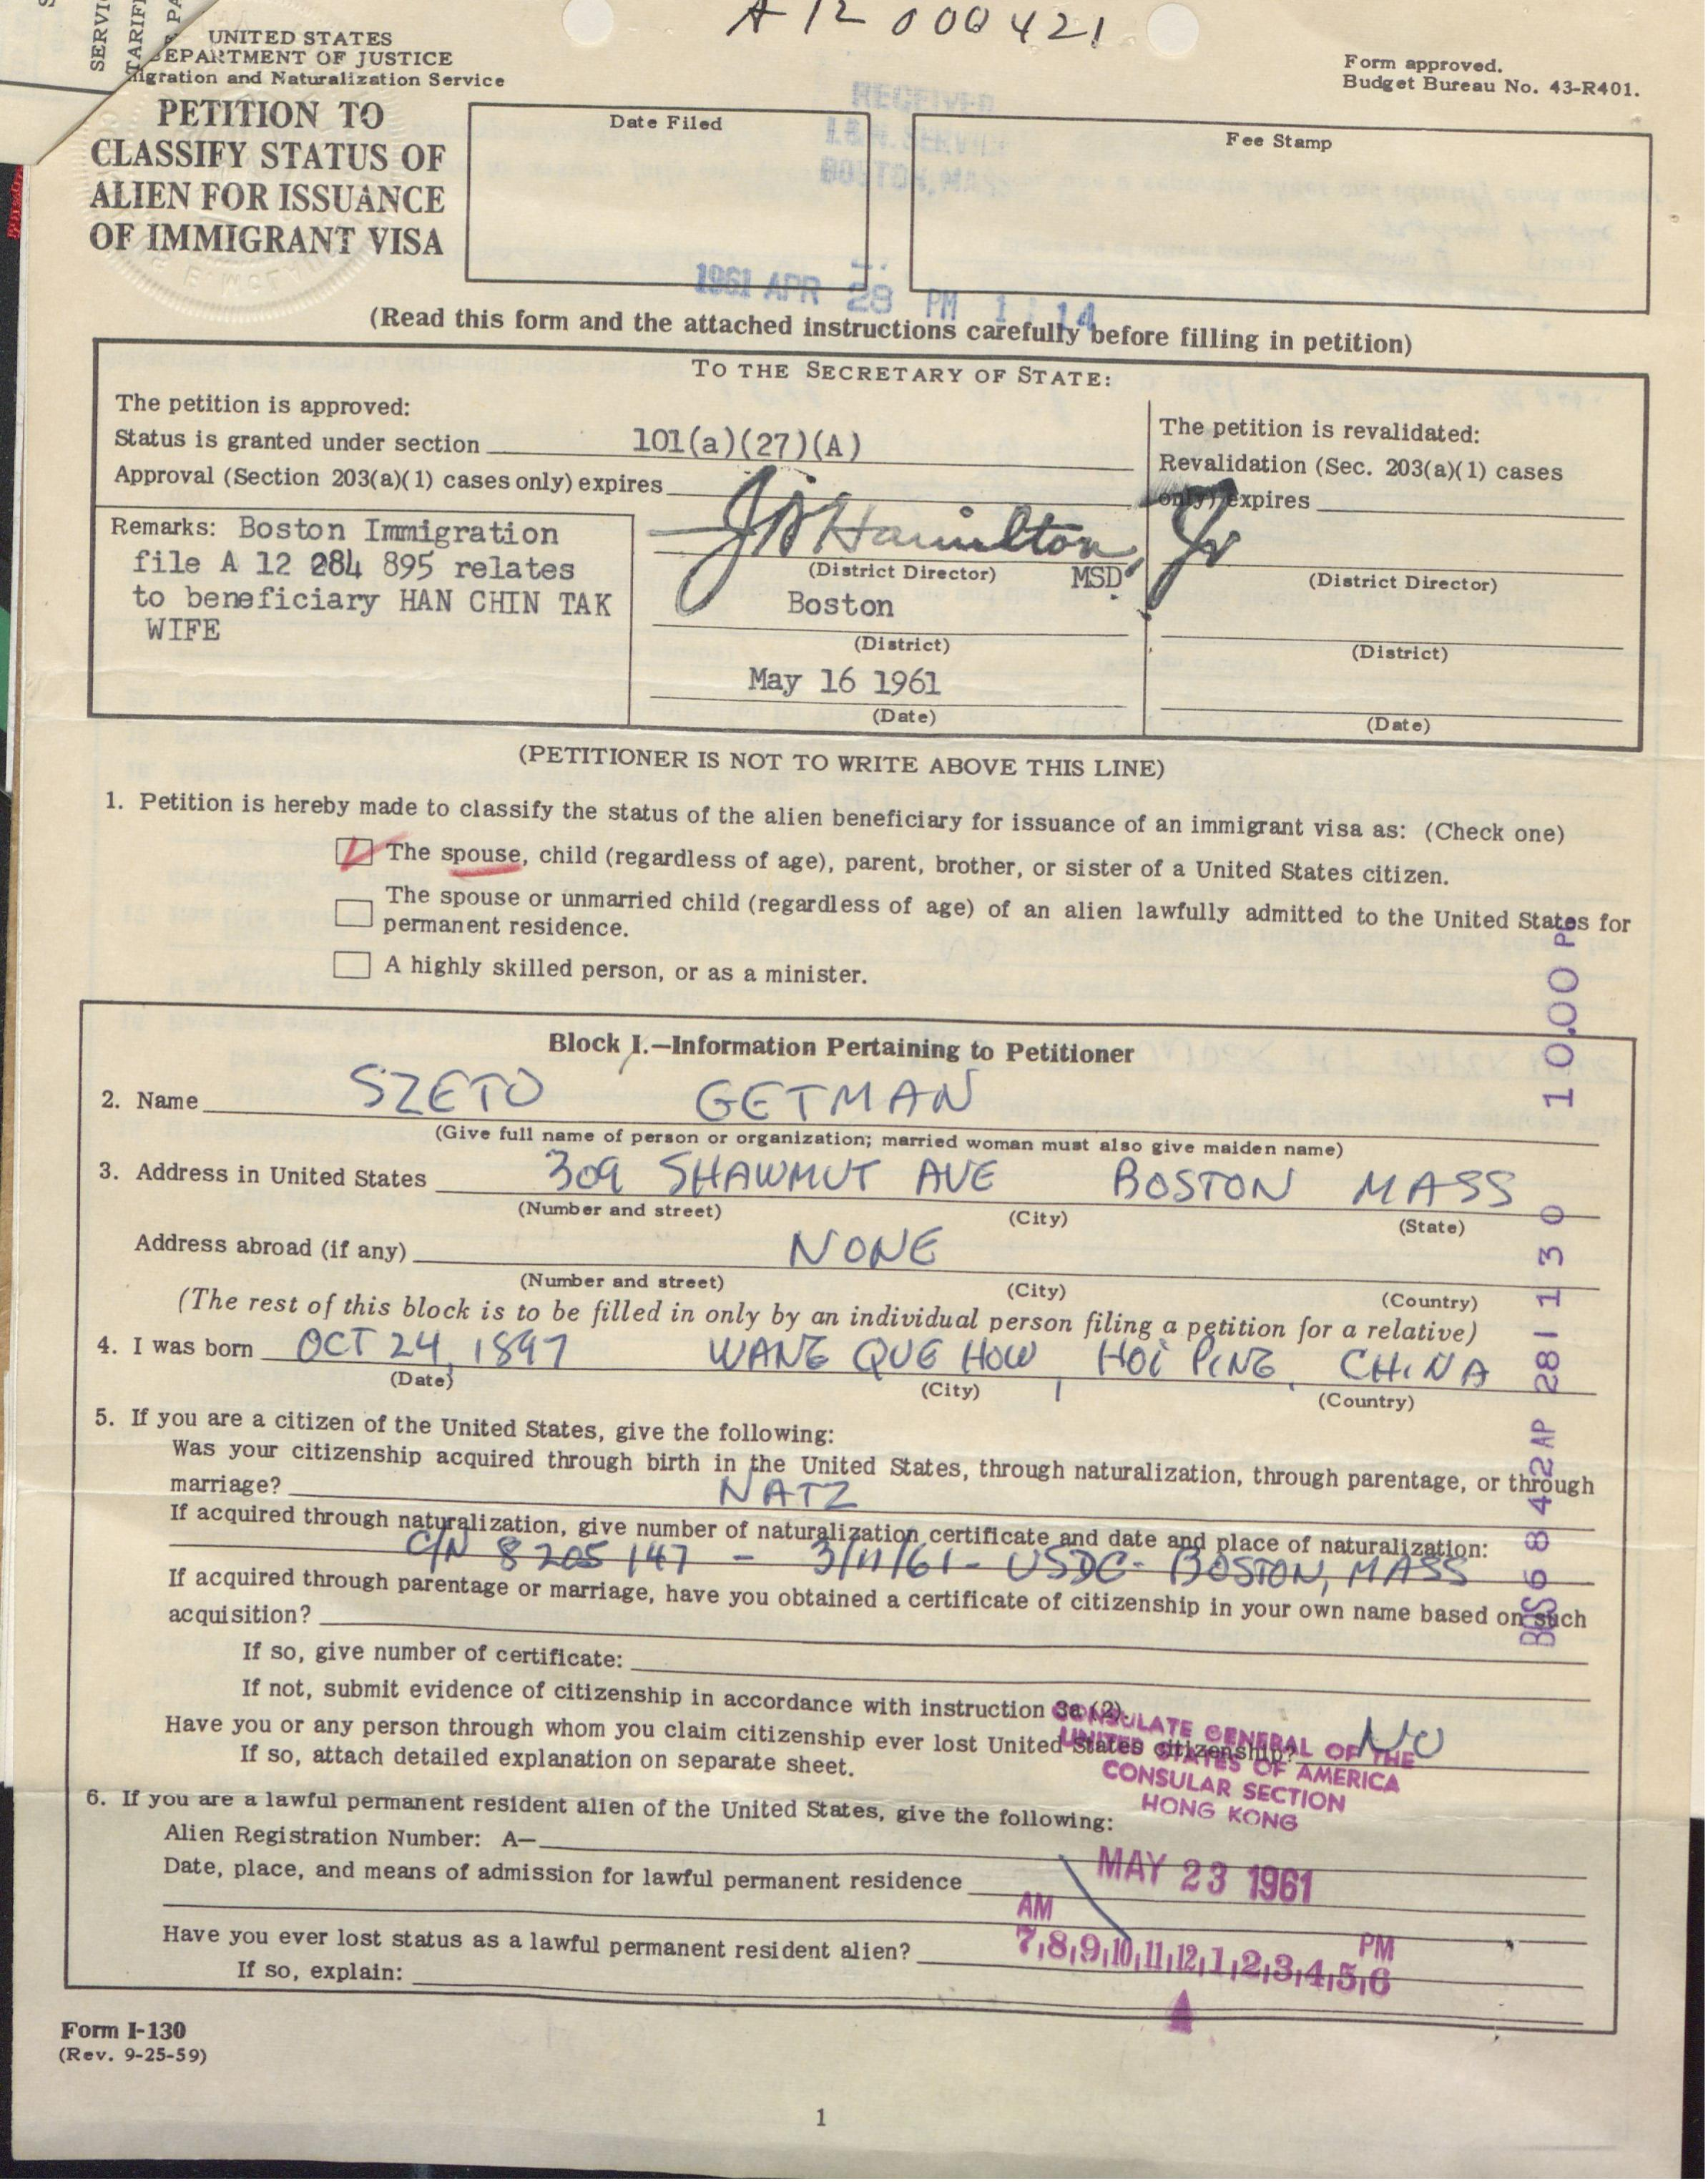 A12 000421
SERVI
TARIF
PA
UNITED STATES
DEPARTMENT OF JUSTICE
migration and Naturalization Service
Form approved.
Budget Bureau No. 43-R401.
PETITION TO
CLASSIFY STATUS OF
ALIEN FOR ISSUANCE
OF IMMIGRANT VISA
Date Filed
Fee Stamp
RECEIVED
I & N. SERVICE
BOSTON, MASS
1961 APR 28 PM 1 14
(Read this form and the attached instructions carefully before filling in petition)
TO THE SECRETARY OF STATE:
The petition is approved:
Status is granted under section 101(a)(27)(A)
Approval (Section 203(a)(1) cases only) expires
The petition is revalidated:
Revalidation (Sec. 203(a)(1) cases
only) expires
Remarks: Boston Immigration
file A 12 284 895 relates
to beneficiary HAN CHIN TAK
WIFE
J A Hamilton, Jr
(District Director) MSD
Boston
(District)
May 16 1961
(Date)
(District Director)
(District)
(Date)
(PETITIONER IS NOT TO WRITE ABOVE THIS LINE)
1. Petition is hereby made to classify the status of the alien beneficiary for issuance of an immigrant visa as: (Check one)
The spouse, child (regardless of age), parent, brother, or sister of a United States citizen.
The spouse or unmarried child (regardless of age) of an alien lawfully admitted to the United States for
permanent residence.
A highly skilled person, or as a minister.
Block I.—Information Pertaining to Petitioner
2. Name SZETO GETMAN
(Give full name of person or organization; married woman must also give maiden name)
3. Address in United States 309 SHAWMUT AVE BOSTON MASS
(Number and street) (City) (State)
Address abroad (if any) NONE
(Number and street) (City) (Country)
(The rest of this block is to be filled in only by an individual person filing a petition for a relative)
4. I was born OCT 24, 1897 WANG QUE HOW, HOI PING, CHINA
(Date) (City) (Country)
5. If you are a citizen of the United States, give the following:
Was your citizenship acquired through birth in the United States, through naturalization, through parentage, or through
marriage? NATZ
If acquired through naturalization, give number of naturalization certificate and date and place of naturalization:
C/N 8205147 - 3/11/61 - USDC - BOSTON, MASS
If acquired through parentage or marriage, have you obtained a certificate of citizenship in your own name based on such
acquisition?
If so, give number of certificate:
If not, submit evidence of citizenship in accordance with instruction 3a (2).
Have you or any person through whom you claim citizenship ever lost United States citizenship? NO
If so, attach detailed explanation on separate sheet.
CONSULATE GENERAL OF THE
UNITED STATES OF AMERICA
CONSULAR SECTION
HONG KONG
6. If you are a lawful permanent resident alien of the United States, give the following:
Alien Registration Number: A—
Date, place, and means of admission for lawful permanent residence
MAY 23 1961
AM PM
7,8,9,10,11,12,1,2,3,4,5,6
Have you ever lost status as a lawful permanent resident alien?
If so, explain:
BOS6 8 4 2AP 281 1 3 0 10.00 PE
Form I-130
(Rev. 9-25-59)
1